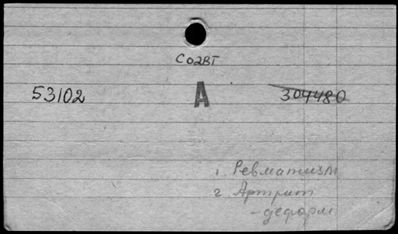 CO2BT
53102 A 304480
1. Ревматизм
2 Артрит
- деформ